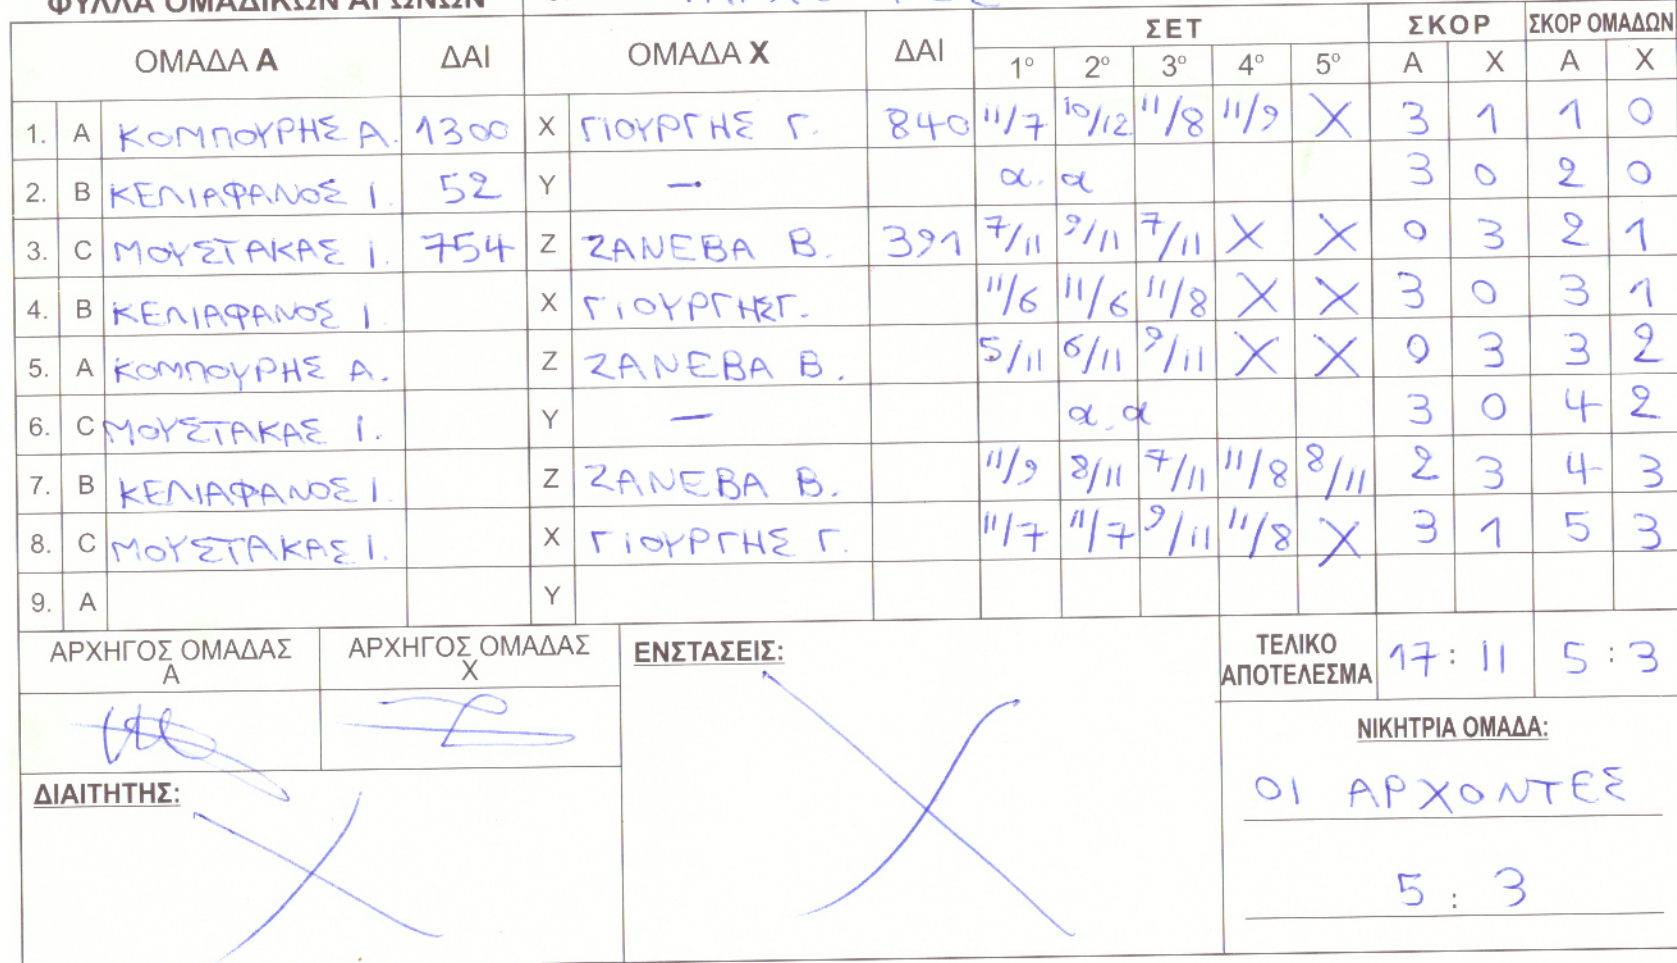 ΦΥΛΛΑ ΟΜΑΔΙΚΩΝ ΑΓΩΝΩΝ
ΟΜΑΔΑ Α ΔΑΙ ΟΜΑΔΑ Χ ΔΑΙ ΣΕΤ ΣΚΟΡ ΣΚΟΡ ΟΜΑΔΩΝ
1° 2° 3° 4° 5° Α Χ Α Χ
1. Α ΚΟΜΠΟΥΡΗΣ Α. 1300 Χ ΓΙΟΥΡΓΗΣ Γ. 840 11/7 10/12 11/8 11/9 X 3 1 1 0
2. Β ΚΕΛΙΑΦΑΝΟΣ Ι. 52 Υ — α. α 3 0 2 0
3. C ΜΟΥΣΤΑΚΑΣ Ι. 754 Ζ ΖΑΝΕΒΑ Β. 391 7/11 9/11 7/11 X X 0 3 2 1
4. Β ΚΕΛΙΑΦΑΝΟΣ Ι. Χ ΓΙΟΥΡΓΗΣ Γ. 11/6 11/6 11/8 X X 3 0 3 1
5. Α ΚΟΜΠΟΥΡΗΣ Α. Ζ ΖΑΝΕΒΑ Β. 5/11 6/11 9/11 X X 0 3 3 2
6. C ΜΟΥΣΤΑΚΑΣ Ι. Υ — α. α 3 0 4 2
7. Β ΚΕΛΙΑΦΑΝΟΣ Ι. Ζ ΖΑΝΕΒΑ Β. 11/9 8/11 7/11 11/8 8/11 2 3 4 3
8. C ΜΟΥΣΤΑΚΑΣ Ι. Χ ΓΙΟΥΡΓΗΣ Γ. 11/7 11/7 9/11 11/8 X 3 1 5 3
9. Α Υ
ΑΡΧΗΓΟΣ ΟΜΑΔΑΣ Α ΑΡΧΗΓΟΣ ΟΜΑΔΑΣ Χ ΕΝΣΤΑΣΕΙΣ: ΤΕΛΙΚΟ ΑΠΟΤΕΛΕΣΜΑ 17 : 11 5 : 3
ΝΙΚΗΤΡΙΑ ΟΜΑΔΑ:
ΔΙΑΙΤΗΤΗΣ:
ΟΙ ΑΡΧΟΝΤΕΣ
5 : 3